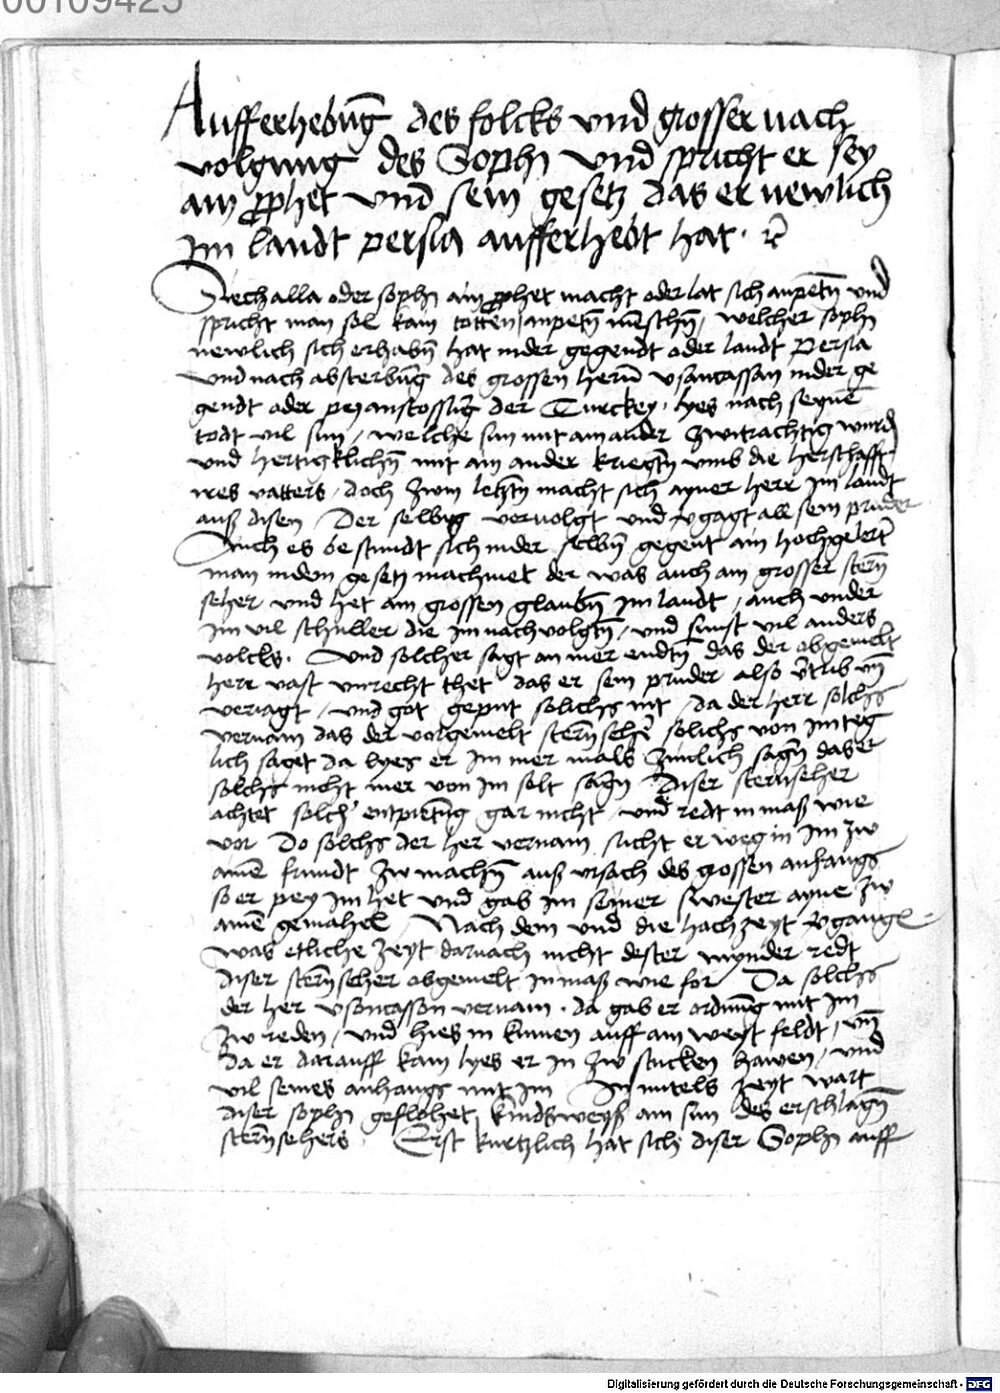 00109425
Aufferhebūg des folcks und grosser nach
volgung des Sophi und spricht er sey
ain prophet und sein gesetz das er newlich
im landt persia aufferhebt hat · rc̄
Sechalla oder sophi ain prophet macht oder lat sich anpetn̄ und
spricht man sol kain totten anpetn̄ menschn̄, welcher sophi
newlich sich erhabn̄ hat inder gegendt oder landt Persia
und nach absterbūg des grossen herrn̄ usancassan inder ge
gendt oder peyanstossūg der Turckey, lyes nach seynē
todt vil sun, welche sun mit ainander zwitrachtig wurdn̄
und hertigklichn̄ mit ain ander kriegtn̄ umb die herschafft
ires vatters, doch zum letztn̄ macht sich ayner herr im landt
auß disen Der selbig vervolgt und v̄gagt all sein pruder
Auch es bestundt sich inder selbn̄ gegent ain hochgelert̄
man indem gesetz machmet der was auch ain grosser stern̄
seher und het ain grossen glaubn̄ im landt, auch under
im vil schuller die im nachvolgtn̄, und sunst vil anders
volcks. Und solcher sagt an mer endtn̄ das der obgemelt
herr vast unrecht thet das er sein pruder also v̄trib un̄
veriagt, und got geput solichs nit, da der herr solchs
vernam das der vorgemelt stern̄seher solichs von im teg
lich saget da lyes er im mer mals zimlich sagn̄ das er
solchs nicht mer von im solt sagn̄ Diser sternseher
achtet solch̄ entpietūg gar nicht, und redt in maß wie
vor Do solchs der her vernam sucht er weg in im zw
ainē frundt zw machn̄ auß ursach des grossen anhangs
so er pey im het und gab im seiner swester ayne zw
ainē gemahel Nach dem und die hachzeyt v̄gangē
was etliche zeyt darnach nicht dester mynder redt
diser stern̄seher obgemelt inmaß wie for Da solchs
der her usoncasson vernam · da gab er ordnūg mit im
zw reden, und hies in kumen auff ain weyt feldt, un̄
da er darauff kam lyes er in zw stucken hawen, und
vil seines anhangs mit im In mitels zeyt wart
diser sophi geflohet kindßweyß ain sun des erschlagn̄
stern̄sehers Erst kurtzlich hat sich diser Sophi auff
Digitalisierung gefördert durch die Deutsche Forschungsgemeinschaft - DFG